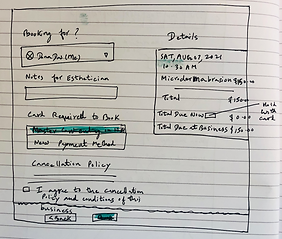 Booking for ?
(Me)
Notes for Esthetician
Card Required to Book
New Payment Method
Cancellation Policy
I agree to the cancellation
Policy and conditions of this
business
Back
Details
SAT, AUGUST 7, 2021
10:30 AM
Microdermabrasion $150.00
Total $150.00
Total Due Now $0.00
Total Due at Business $150.00
Hold
with
card